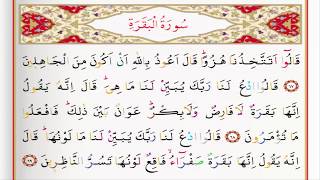 سُورَةُ الْبَقَرَةِ
قَالُوا أَتَتَّخِذُنَا هُزُوًا قَالَ أَعُوذُ بِاللَّهِ أَنْ أَكُونَ مِنَ الْجَاهِلِينَ
قَالُوا ادْعُ لَنَا رَبَّكَ يُبَيِّنْ لَنَا مَا هِيَ قَالَ إِنَّهُ يَقُولُ
إِنَّهَا بَقَرَةٌ لَا فَارِضٌ وَلَا بِكْرٌ عَوَانٌ بَيْنَ ذَلِكَ فَافْعَلُوا
مَا تُؤْمَرُونَ قَالُوا ادْعُ لَنَا رَبَّكَ يُبَيِّنْ لَنَا مَا لَوْنُهَا قَالَ
إِنَّهُ يَقُولُ إِنَّهَا بَقَرَةٌ صَفْرَاءُ فَاقِعٌ لَوْنُهَا تَسُرُّ النَّاظِرِينَ